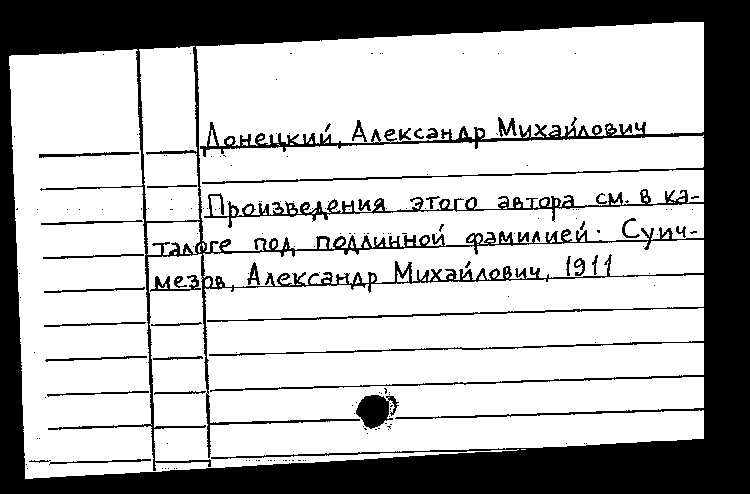 Донецкий, Александр Михайлович
Произведения этого автора см. в ка-
талоге под подлинной фамилией: Суич-
мезов, Александр Михайлович, 1911